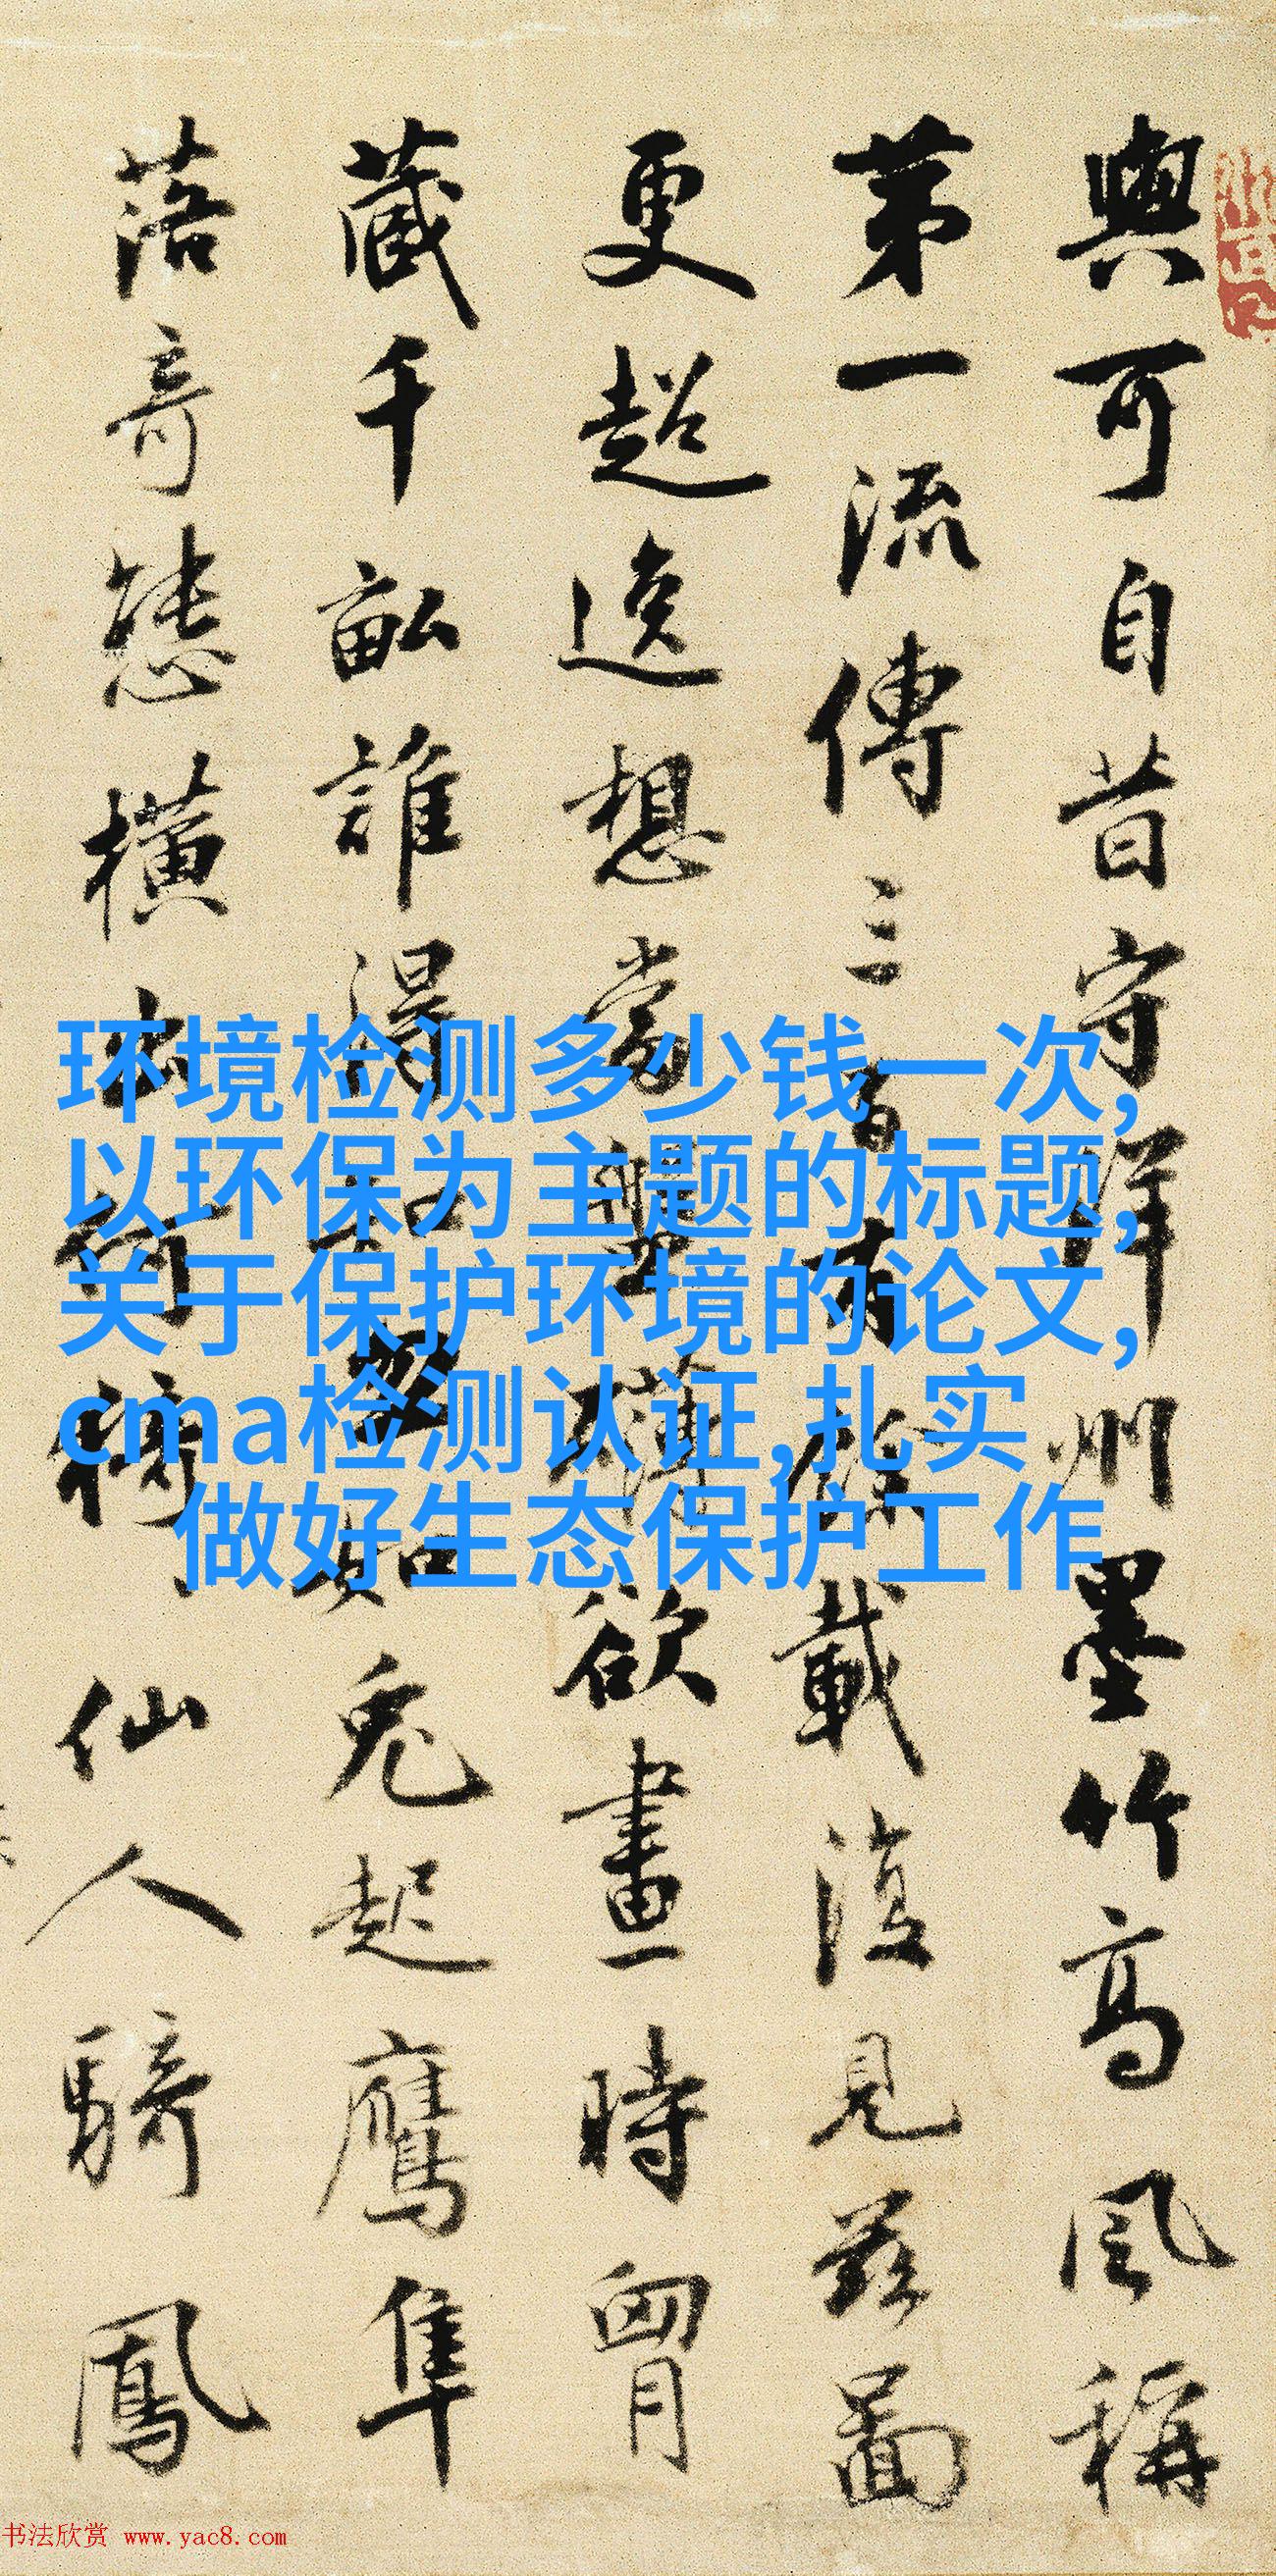 與可自昔守洋州墨竹高風稱
苐一流傳三百有餘載復見兹啚
更超逸想當盤礴欲畫時胷
藏千畝誰得知勢如兔起鷹隼
落奇態橫出何仙人騎鳳
环境检测多少钱一次,
以环保为主题的标题,
关于保护环境的论文,
cma检测认证,扎实
做好生态保护工作
书法欣赏 www.yac8.com